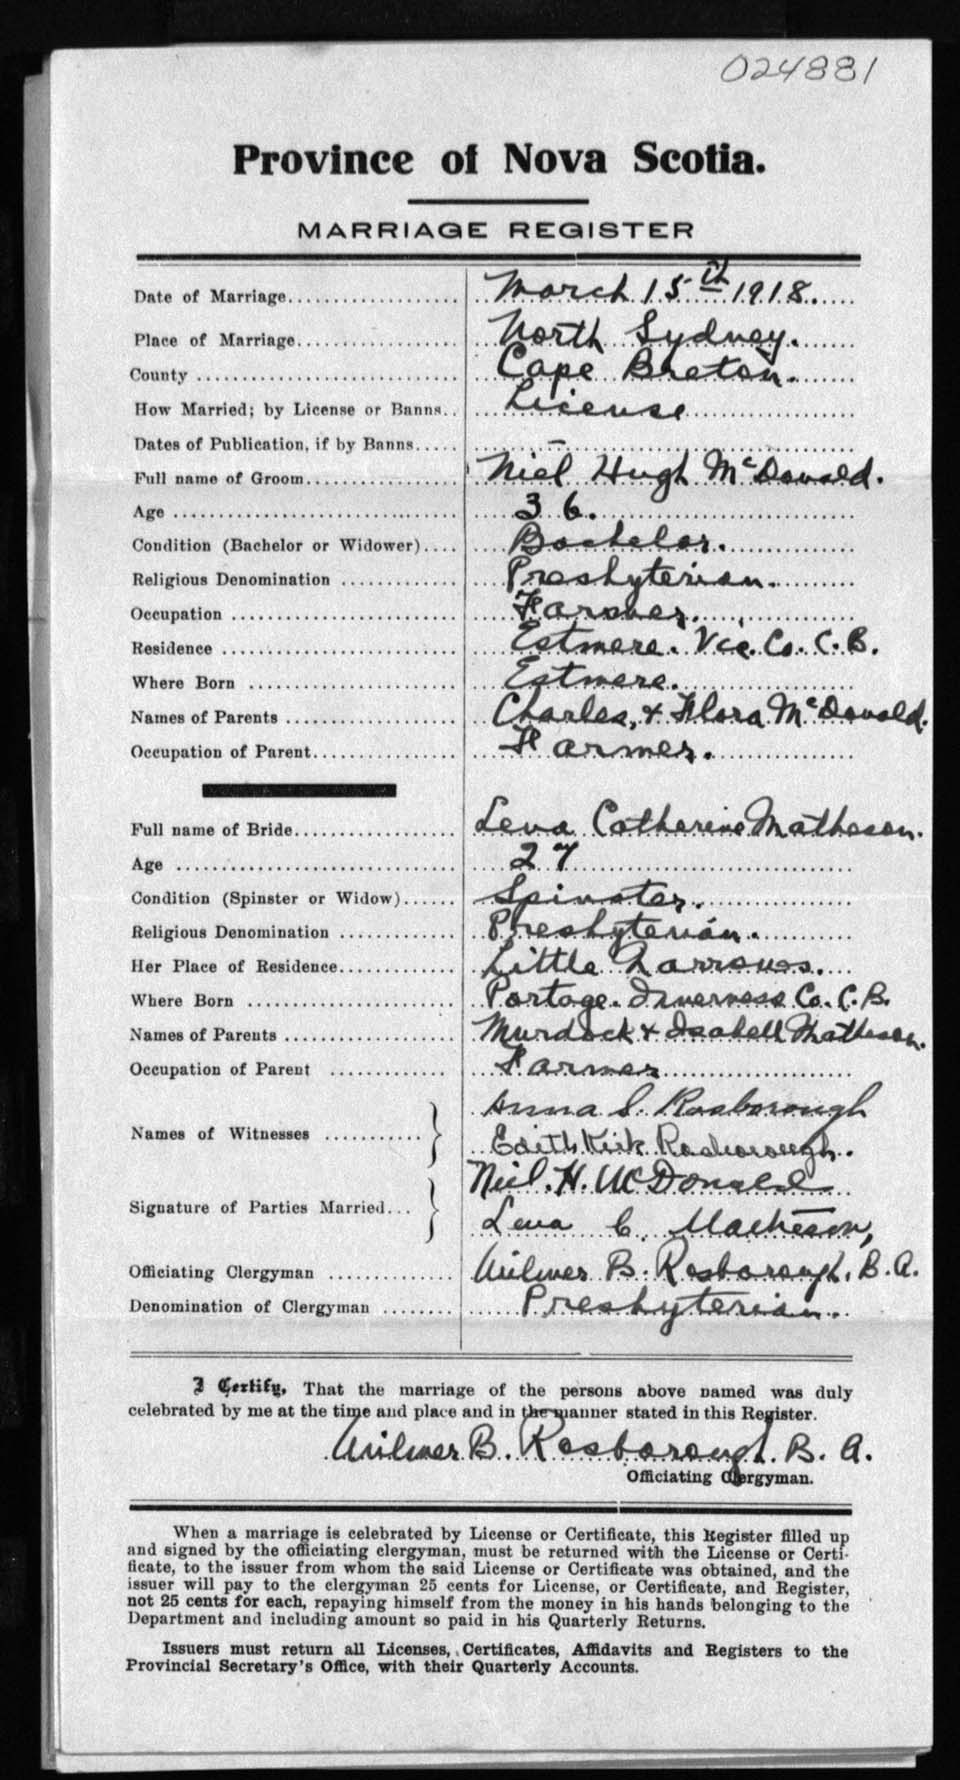 024881
Province of Nova Scotia.
MARRIAGE REGISTER
Date of Marriage.................. March 15th 1918.
Place of Marriage.................. North Sydney.
County .................. Cape Breton.
How Married; by License or Banns.. License
Dates of Publication, if by Banns..... –
Full name of Groom.................. Niel Hugh McDonald.
Age .................. 36.
Condition (Bachelor or Widower).... Bachelor.
Religious Denomination ............. Presbyterian.
Occupation .................. Farmer.
Residence .................. Estmere. Vic. Co. C. B.
Where Born .................. Estmere.
Names of Parents .................. Charles, & Flora McDonald.
Occupation of Parent.................. Farmer.
Full name of Bride.................. Lena Catherine Matheson.
Age .................. 27
Condition (Spinster or Widow)...... Spinster.
Religious Denomination ............. Presbyterian.
Her Place of Residence............. Little Narrows.
Where Born .................. Portage. Inverness Co. C. B.
Names of Parents .................. Murdock & Isabell Matheson.
Occupation of Parent ............. Farmer
Anna S. Rosborough
Names of Witnesses ...........}
Edith Kirk Rosborough.
Niel. H. McDonald
Signature of Parties Married...}
Lena C. Matheson,
Officiating Clergyman ............. Wilmer B. Rosborough, B. A.
Denomination of Clergyman ........ Presbyterian.
I Certify, That the marriage of the persons above named was duly
celebrated by me at the time and place and in the manner stated in this Register.
Wilmer B. Rosborough. B. A.
Officiating Clergyman.
When a marriage is celebrated by License or Certificate, this Register filled up
and signed by the officiating clergyman, must be returned with the License or Certi-
ficate, to the issuer from whom the said License or Certificate was obtained, and the
issuer will pay to the clergyman 25 cents for License, or Certificate, and Register,
not 25 cents for each, repaying himself from the money in his hands belonging to the
Department and including amount so paid in his Quarterly Returns.
Issuers must return all Licenses, Certificates, Affidavits and Registers to the
Provincial Secretary's Office, with their Quarterly Accounts.